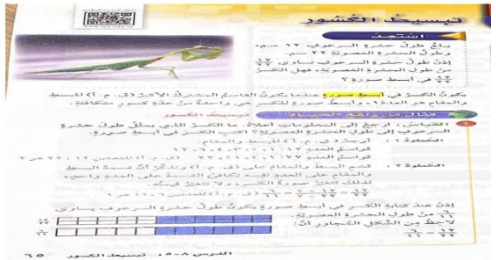 تبسيط الكسور
استعد
يبلغ طول حشرة السرعوف ١٢ سم،
وطول الحشرة العصوية ٢٢ سم.
إذن طول حشرة السرعوف تساوي ١٢/٢٢
من طول الحشرة العصوية، فهل الكسر
١٢/٢٢ في أبسط صورة؟
يكون الكسر في أبسط صورة عندما يكون القاسم المشترك الأكبر (ق. م. أ) للبسط
والمقام هو العدد ١، وأبسط صورة للكسر هي واحدة من عدة كسور متكافئة.
مثال من واقع الحياة تبسيط الكسور
إلى المعلومات أعلاه، ما الكسر الذي يمثل طول حشرة
السرعوف إلى طول الحشرة العصوية؟ اكتب الكسر في أبسط صورة.
الخطوة ١ : أوجد (ق. م. أ) للبسط والمقام
قواسم العدد ١٢: ١، ٢، ٣، ٤، ٦، ١٢
قواسم العدد ٢٢: ١، ٢، ١١، ٢٢
الخطوة ٢ : قسم البسط والمقام على (ق. م. أ)
والمقام على العدد نفسه تكافئ القسمة على العدد واحد،
لذلك تتغير صورة الكسر، ولا تتغير قيمته.
إذن عند كتابة الكسر في أبسط صورة يكون طول حشرة السرعوف يساوي
٦/١١ من طول الحشرة العصوية.
لاحظ من الشكل المجاور أن:
١٢/٢٢ = ٦/١١
الدرس ٨-٥: تبسيط الكسور ٦٥